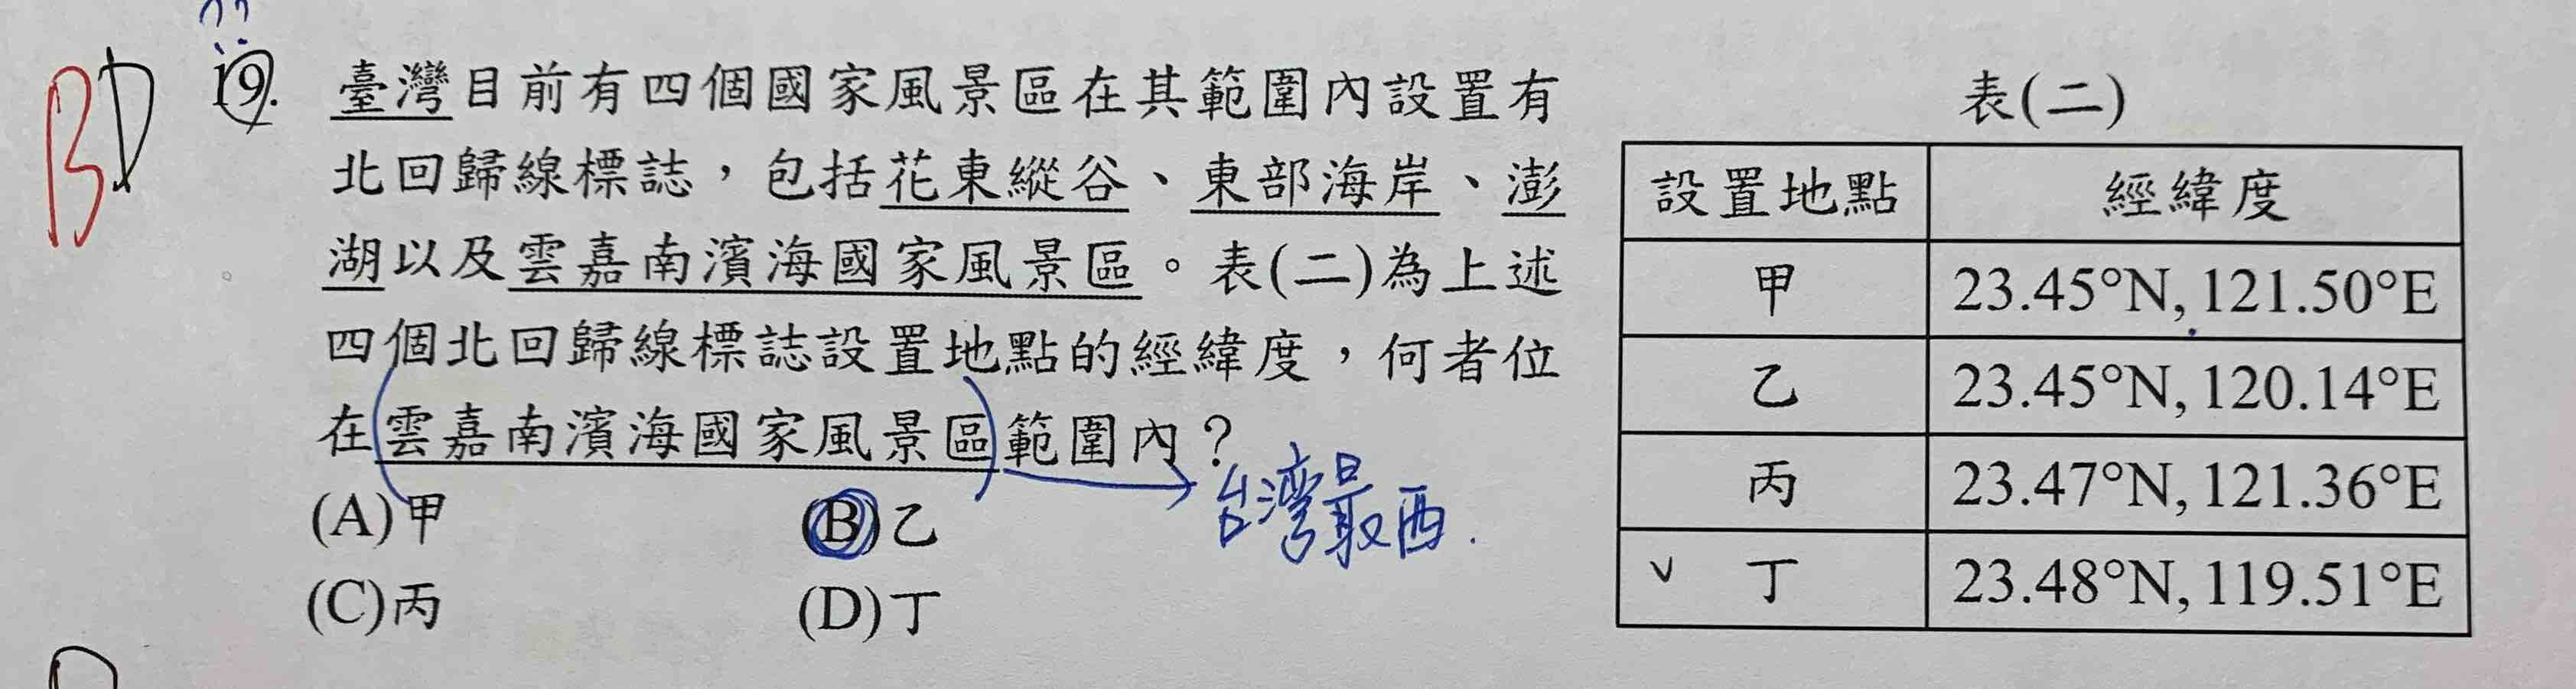 ??
BD
19. 臺灣目前有四個國家風景區在其範圍內設置有
北回歸線標誌，包括花東縱谷、東部海岸、澎
湖以及雲嘉南濱海國家風景區。表(二)為上述
四個北回歸線標誌設置地點的經緯度，何者位
在雲嘉南濱海國家風景區範圍內？
台灣最西.
(A)甲 (B)乙
(C)丙 (D)丁
表(二)
設置地點 經緯度
甲 23.45°N, 121.50°E
乙 23.45°N, 120.14°E
丙 23.47°N, 121.36°E
丁 23.48°N, 119.51°E